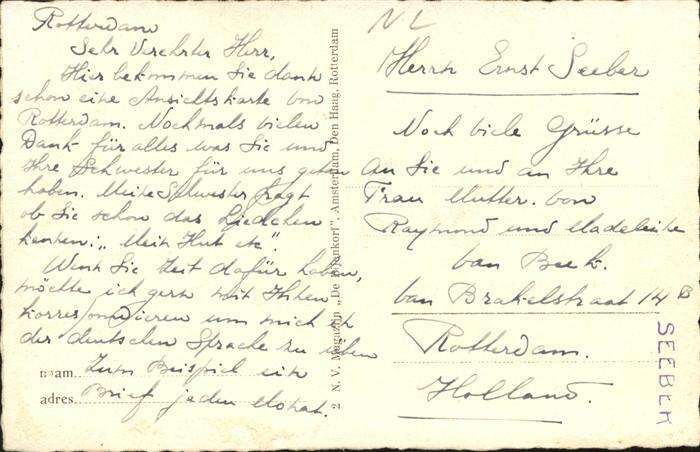 Rotterdam
Sehr Verehrter Herr,
Hier bekommen Sie dank
schon eine Ansichtskarte von
Rotterdam. Nochmals vielen
Dank für alles was Sie und
Ihre Schwester für uns getan
haben. Meine Schwester fragt
ob Sie schon das Liedchen
kennen: „Mein Hut etc."
Wenn Sie Zeit dafür haben,
möchte ich gern mit Ihnen
korrespondieren um mich in
der deutschen Sprache zu üben
Zum Beispiel ein
Brief jeden Monat.
naam
adres
2 N. V. Magazijn „De Bijenkorf", Amsterdam, Den Haag, Rotterdam
N.L
Herrn Ernst Seeber
Noch viele Grüsse
an Sie und an Ihre
Frau Mutter. von
Raymond und Madeleine
van Beek.
van Brakelstraat 14 B
Rotterdam.
Holland.
SEEBER